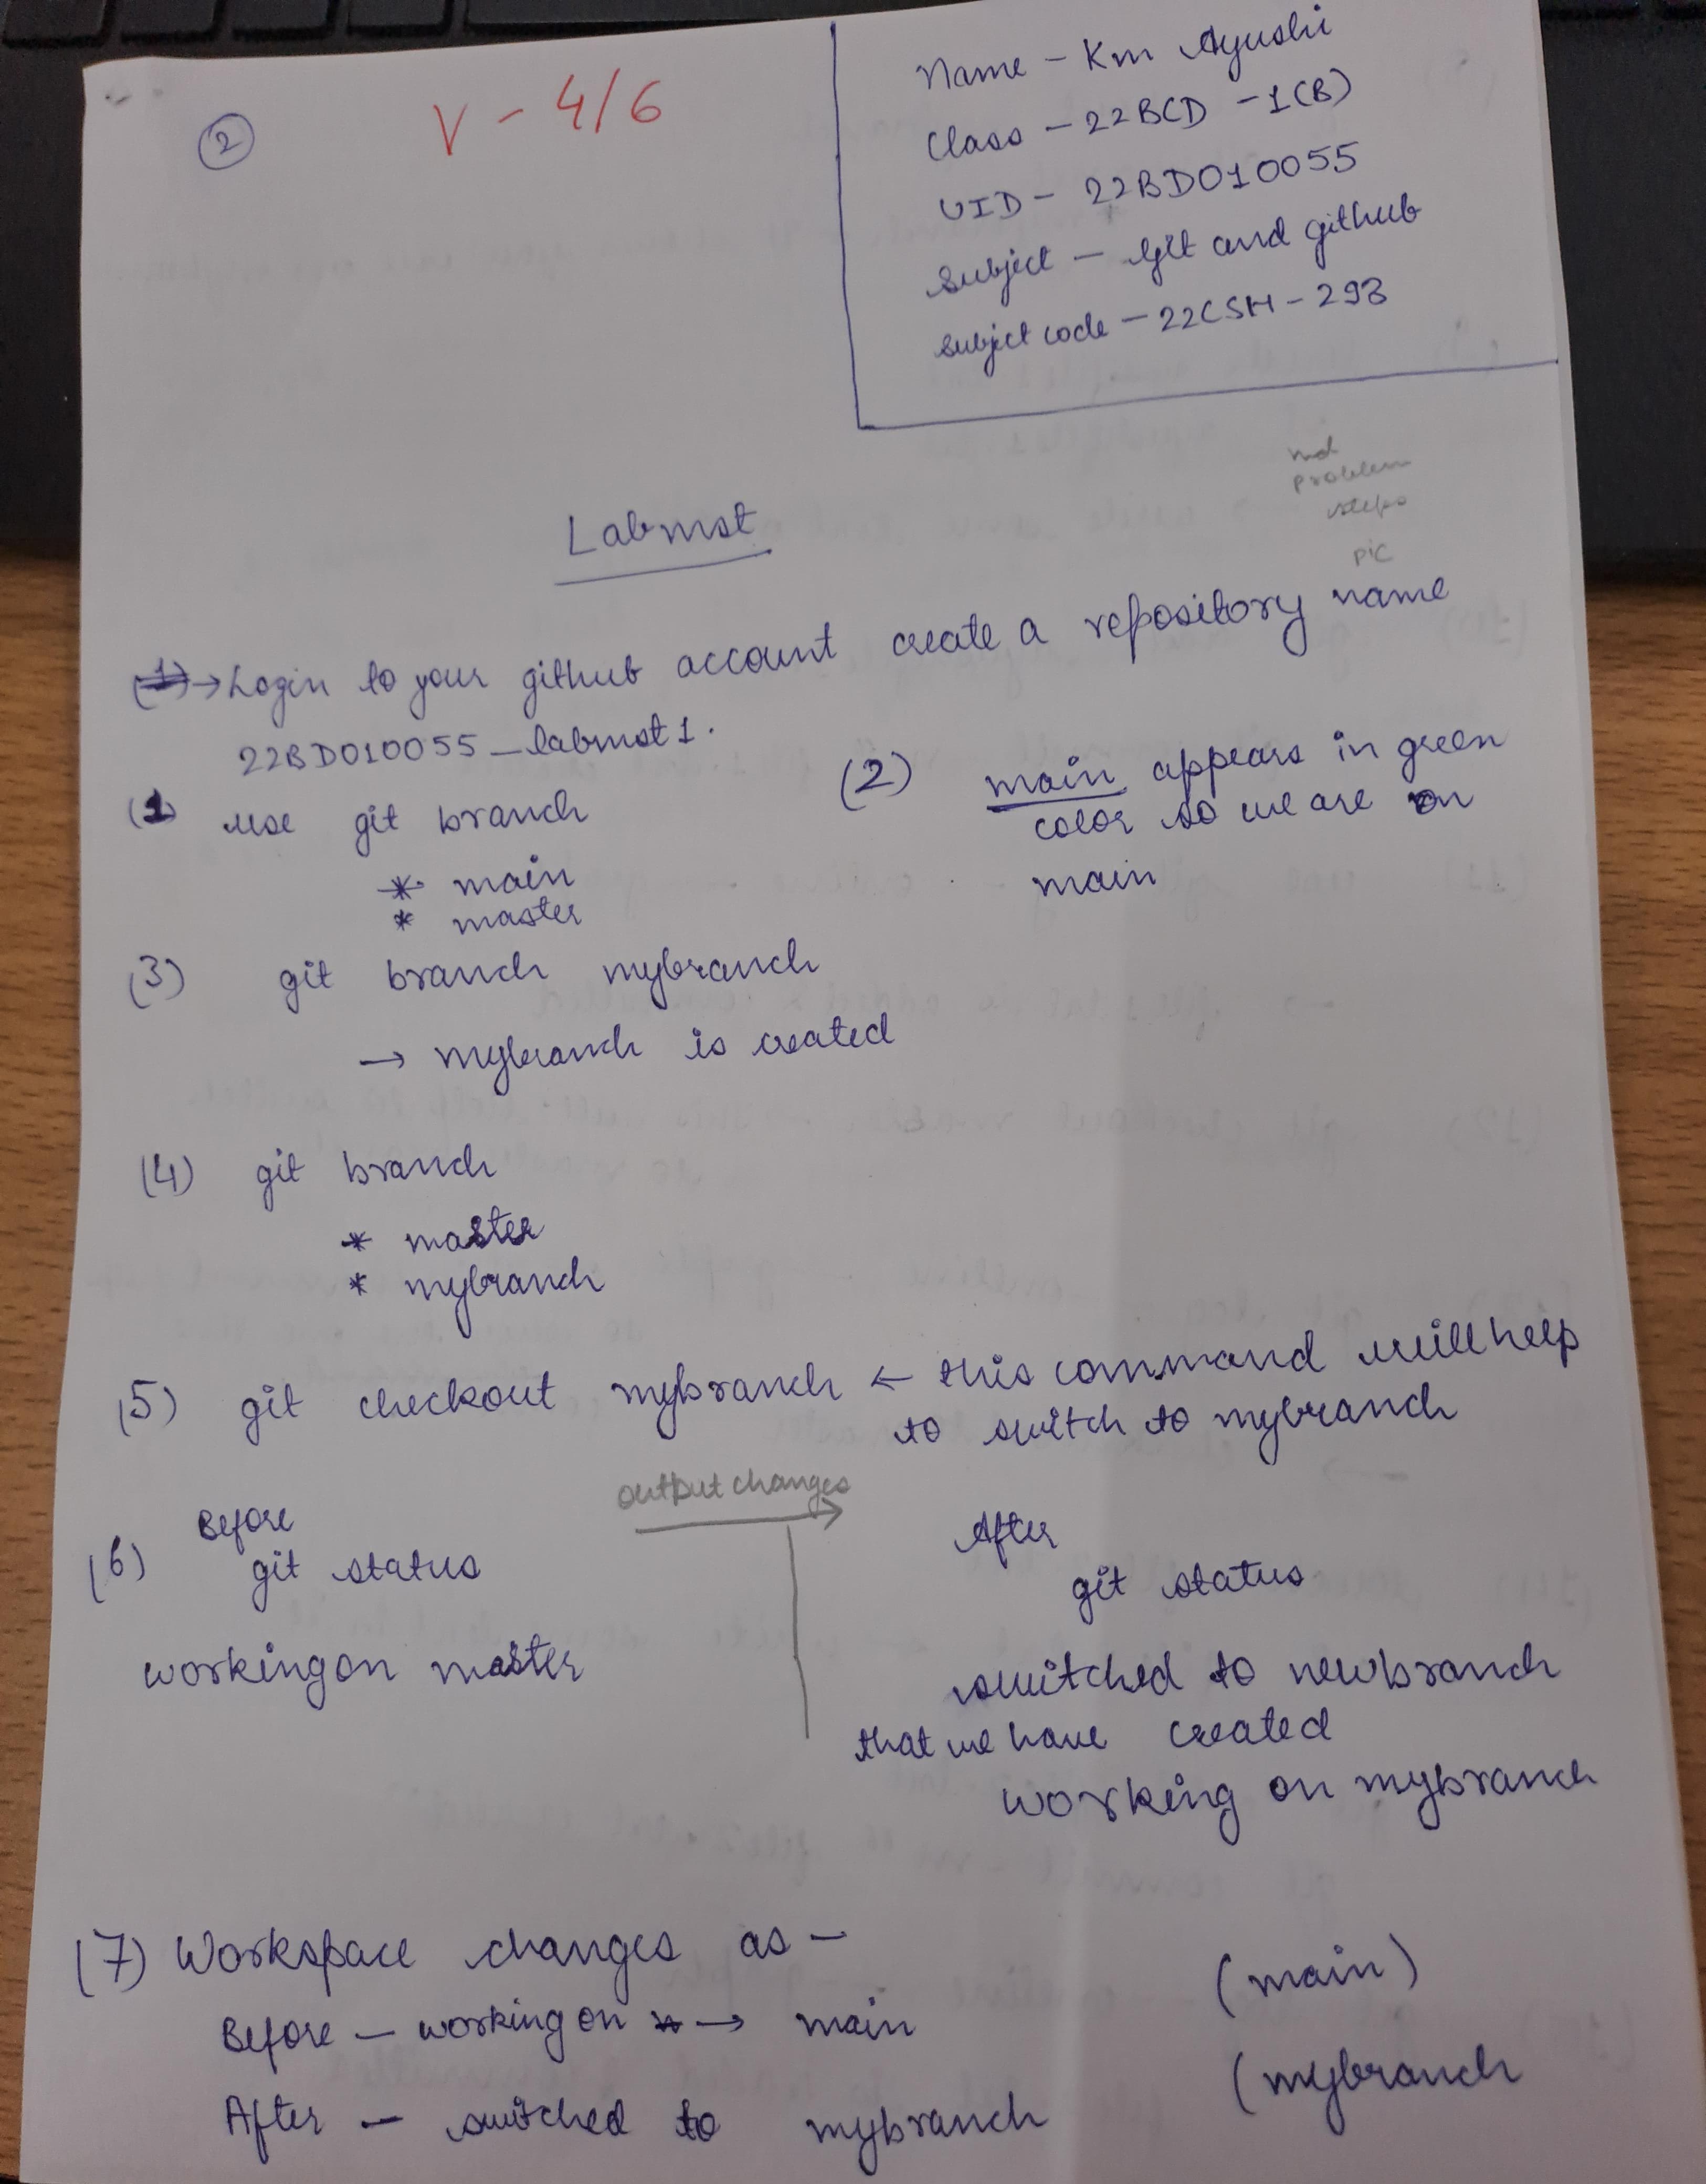 2
V - 4/6
Name - Km Ayushi
Class - 22BCD - 1(B)
UID - 22BD010055
Subject - Git and github
Subject code - 22CSH - 293
problem
steps
pic
Labmst
→ Login to your github account create a repository name
22BD010055_labmst1.
(1) use git branch
* main
* master
(2) main appears in green
color so we are on
main
(3) git branch mybranch
→ mybranch is created
(4) git branch
* master
* mybranch
(5) git checkout mybranch ← this command will help
to switch to mybranch
output changes
Before
(6) git status
working on master
After
git status
switched to newbranch
that we have created
working on mybranch
(7) Workspace changes as -
Before - working on → main (main)
After - switched to mybranch (mybranch